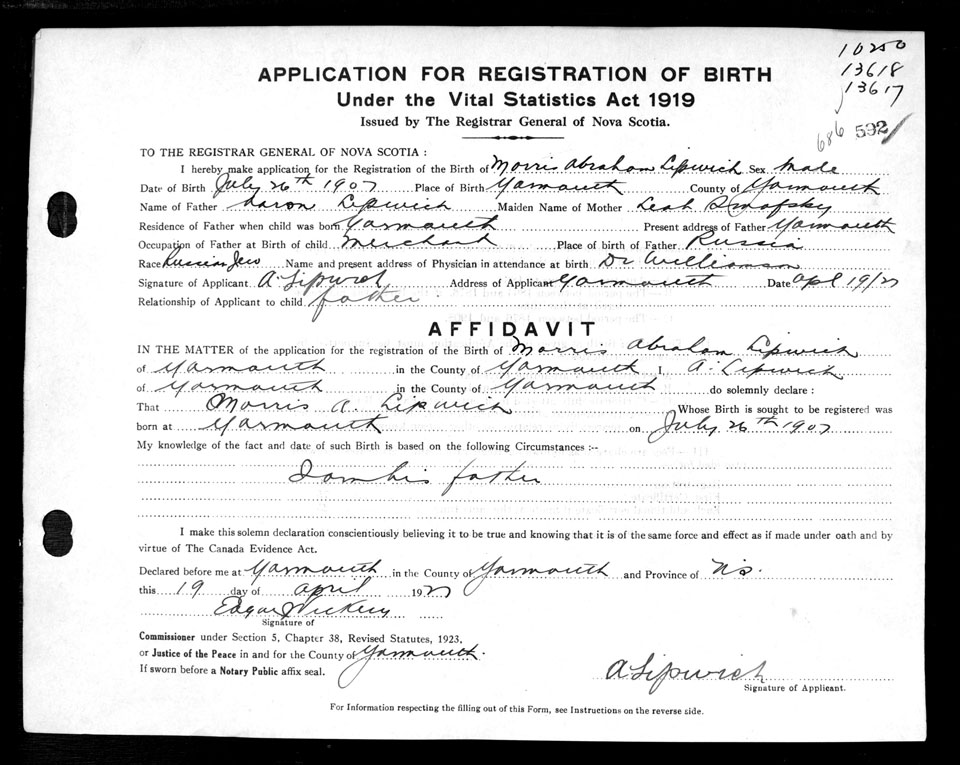 10250
13618
13617
686 592
APPLICATION FOR REGISTRATION OF BIRTH
Under the Vital Statistics Act 1919
Issued by The Registrar General of Nova Scotia.
TO THE REGISTRAR GENERAL OF NOVA SCOTIA :
I hereby make application for the Registration of the Birth of Morris Abraham Lipwich Sex Male
Date of Birth July 26th 1907 Place of Birth Yarmouth County of Yarmouth
Name of Father Aaron Lipwich Maiden Name of Mother Leah
Residence of Father when child was born Yarmouth Present address of Father Yarmouth
Occupation of Father at Birth of child Merchant Place of birth of Father Russia
Race Russian Jew Name and present address of Physician in attendance at birth Dr Williamson
Signature of Applicant A Lipwich Address of Applicant Yarmouth Date Apl 19/27
Relationship of Applicant to child father
AFFIDAVIT
IN THE MATTER of the application for the registration of the Birth of Morris Abraham Lipwich
of Yarmouth in the County of Yarmouth I, A. Lipwich
of Yarmouth in the County of Yarmouth do solemnly declare :
That Morris A. Lipwich Whose Birth is sought to be registered was
born at Yarmouth on July 26th 1907
My knowledge of the fact and date of such Birth is based on the following Circumstances :--
I am his father
I make this solemn declaration conscientiously believing it to be true and knowing that it is of the same force and effect as if made under oath and by
virtue of The Canada Evidence Act.
Declared before me at Yarmouth in the County of Yarmouth and Province of N.S.
this 19 day of April 1927
Edgar J Vickery
Signature of
Commissioner under Section 5, Chapter 38, Revised Statutes, 1923,
or Justice of the Peace in and for the County of Yarmouth.
If sworn before a Notary Public affix seal.
A Lipwich
Signature of Applicant.
For Information respecting the filling out of this Form, see Instructions on the reverse side.